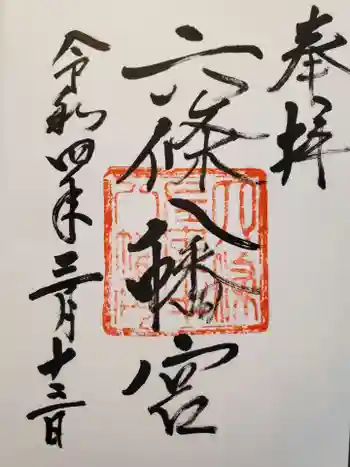 奉拝
六條八幡宮
令和四年三月十三日